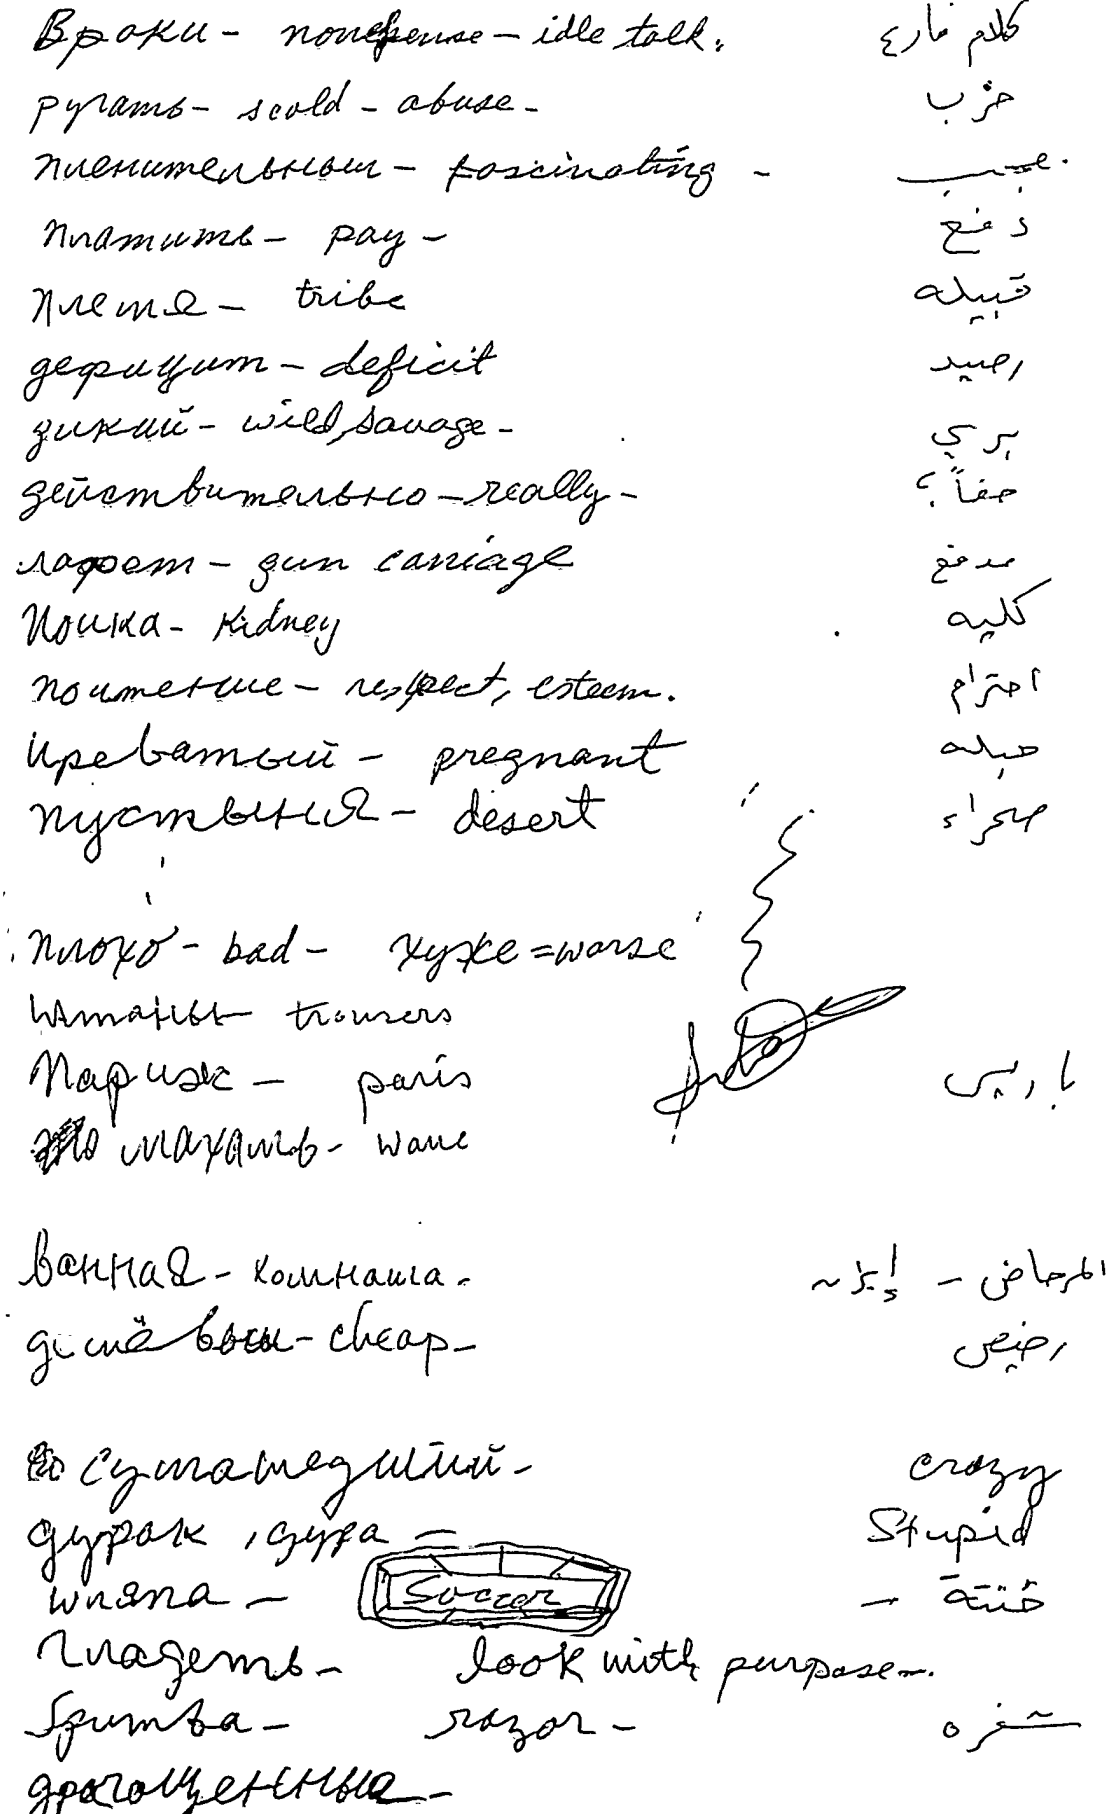 Враки - nonesense - idle talk. كلام فارغ
ругать - scold - abuse -
пленительный - fascinating - عجيب
платить - pay - دفع
племя - tribe قبيله
дефицит - deficit رصيد
дикий - wild, savage - بري
действительно - really - حقاً؟
лафет - gun carriage مدفع
Почка - Kidney كليه
почтение - respect, esteem. احترام
чреватый - pregnant حبله
пустыня - desert صحراء
плохо - bad - хуже = worse
штаны - trousers
Париж - paris باريس
махать - wave
ванная - комната. المرحاض -
дешёвый - cheap - رخيص
сумасшедший - crazy
дурак, дура - Stupid
шляпа - Soccer
глядеть - look with purpose -.
бритва - razor - شفره
драгоценный -